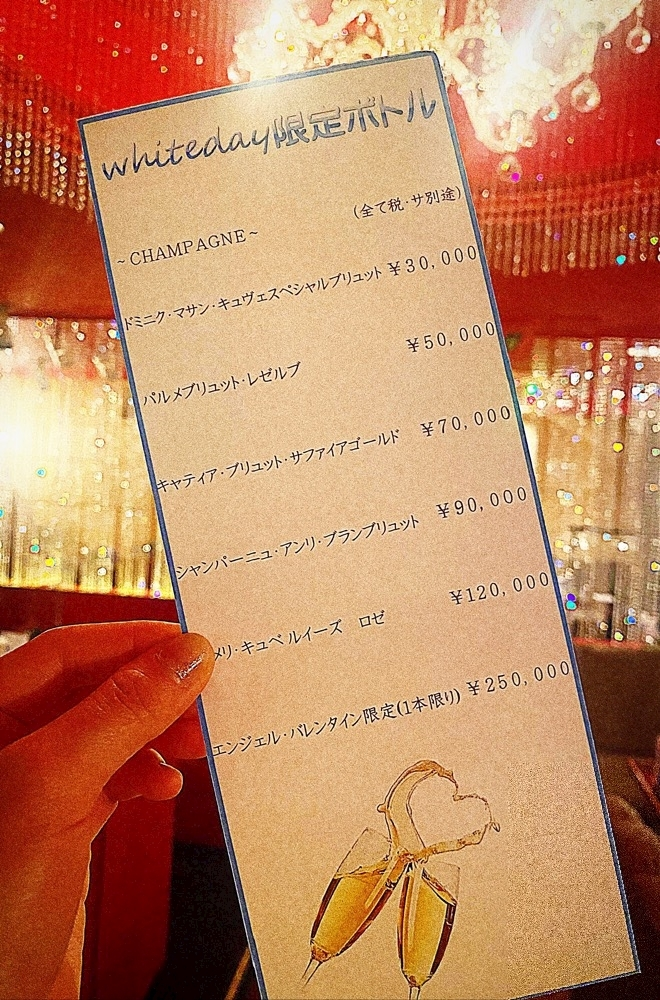 whiteday限定ボトル
(全て税・サ別途)
~CHAMPAGNE~
ドミニク・マサン・キュヴェスペシャルブリュット ¥30,000
パルメブリュット・レゼルブ ¥50,000
キャティア・ブリュット・サファイアゴールド ¥70,000
シャンパーニュ・アンリ・ブランブリュット ¥90,000
メリ・キュベ ルイーズ ロゼ ¥120,000
エンジェル・バレンタイン限定(1本限り) ¥250,000